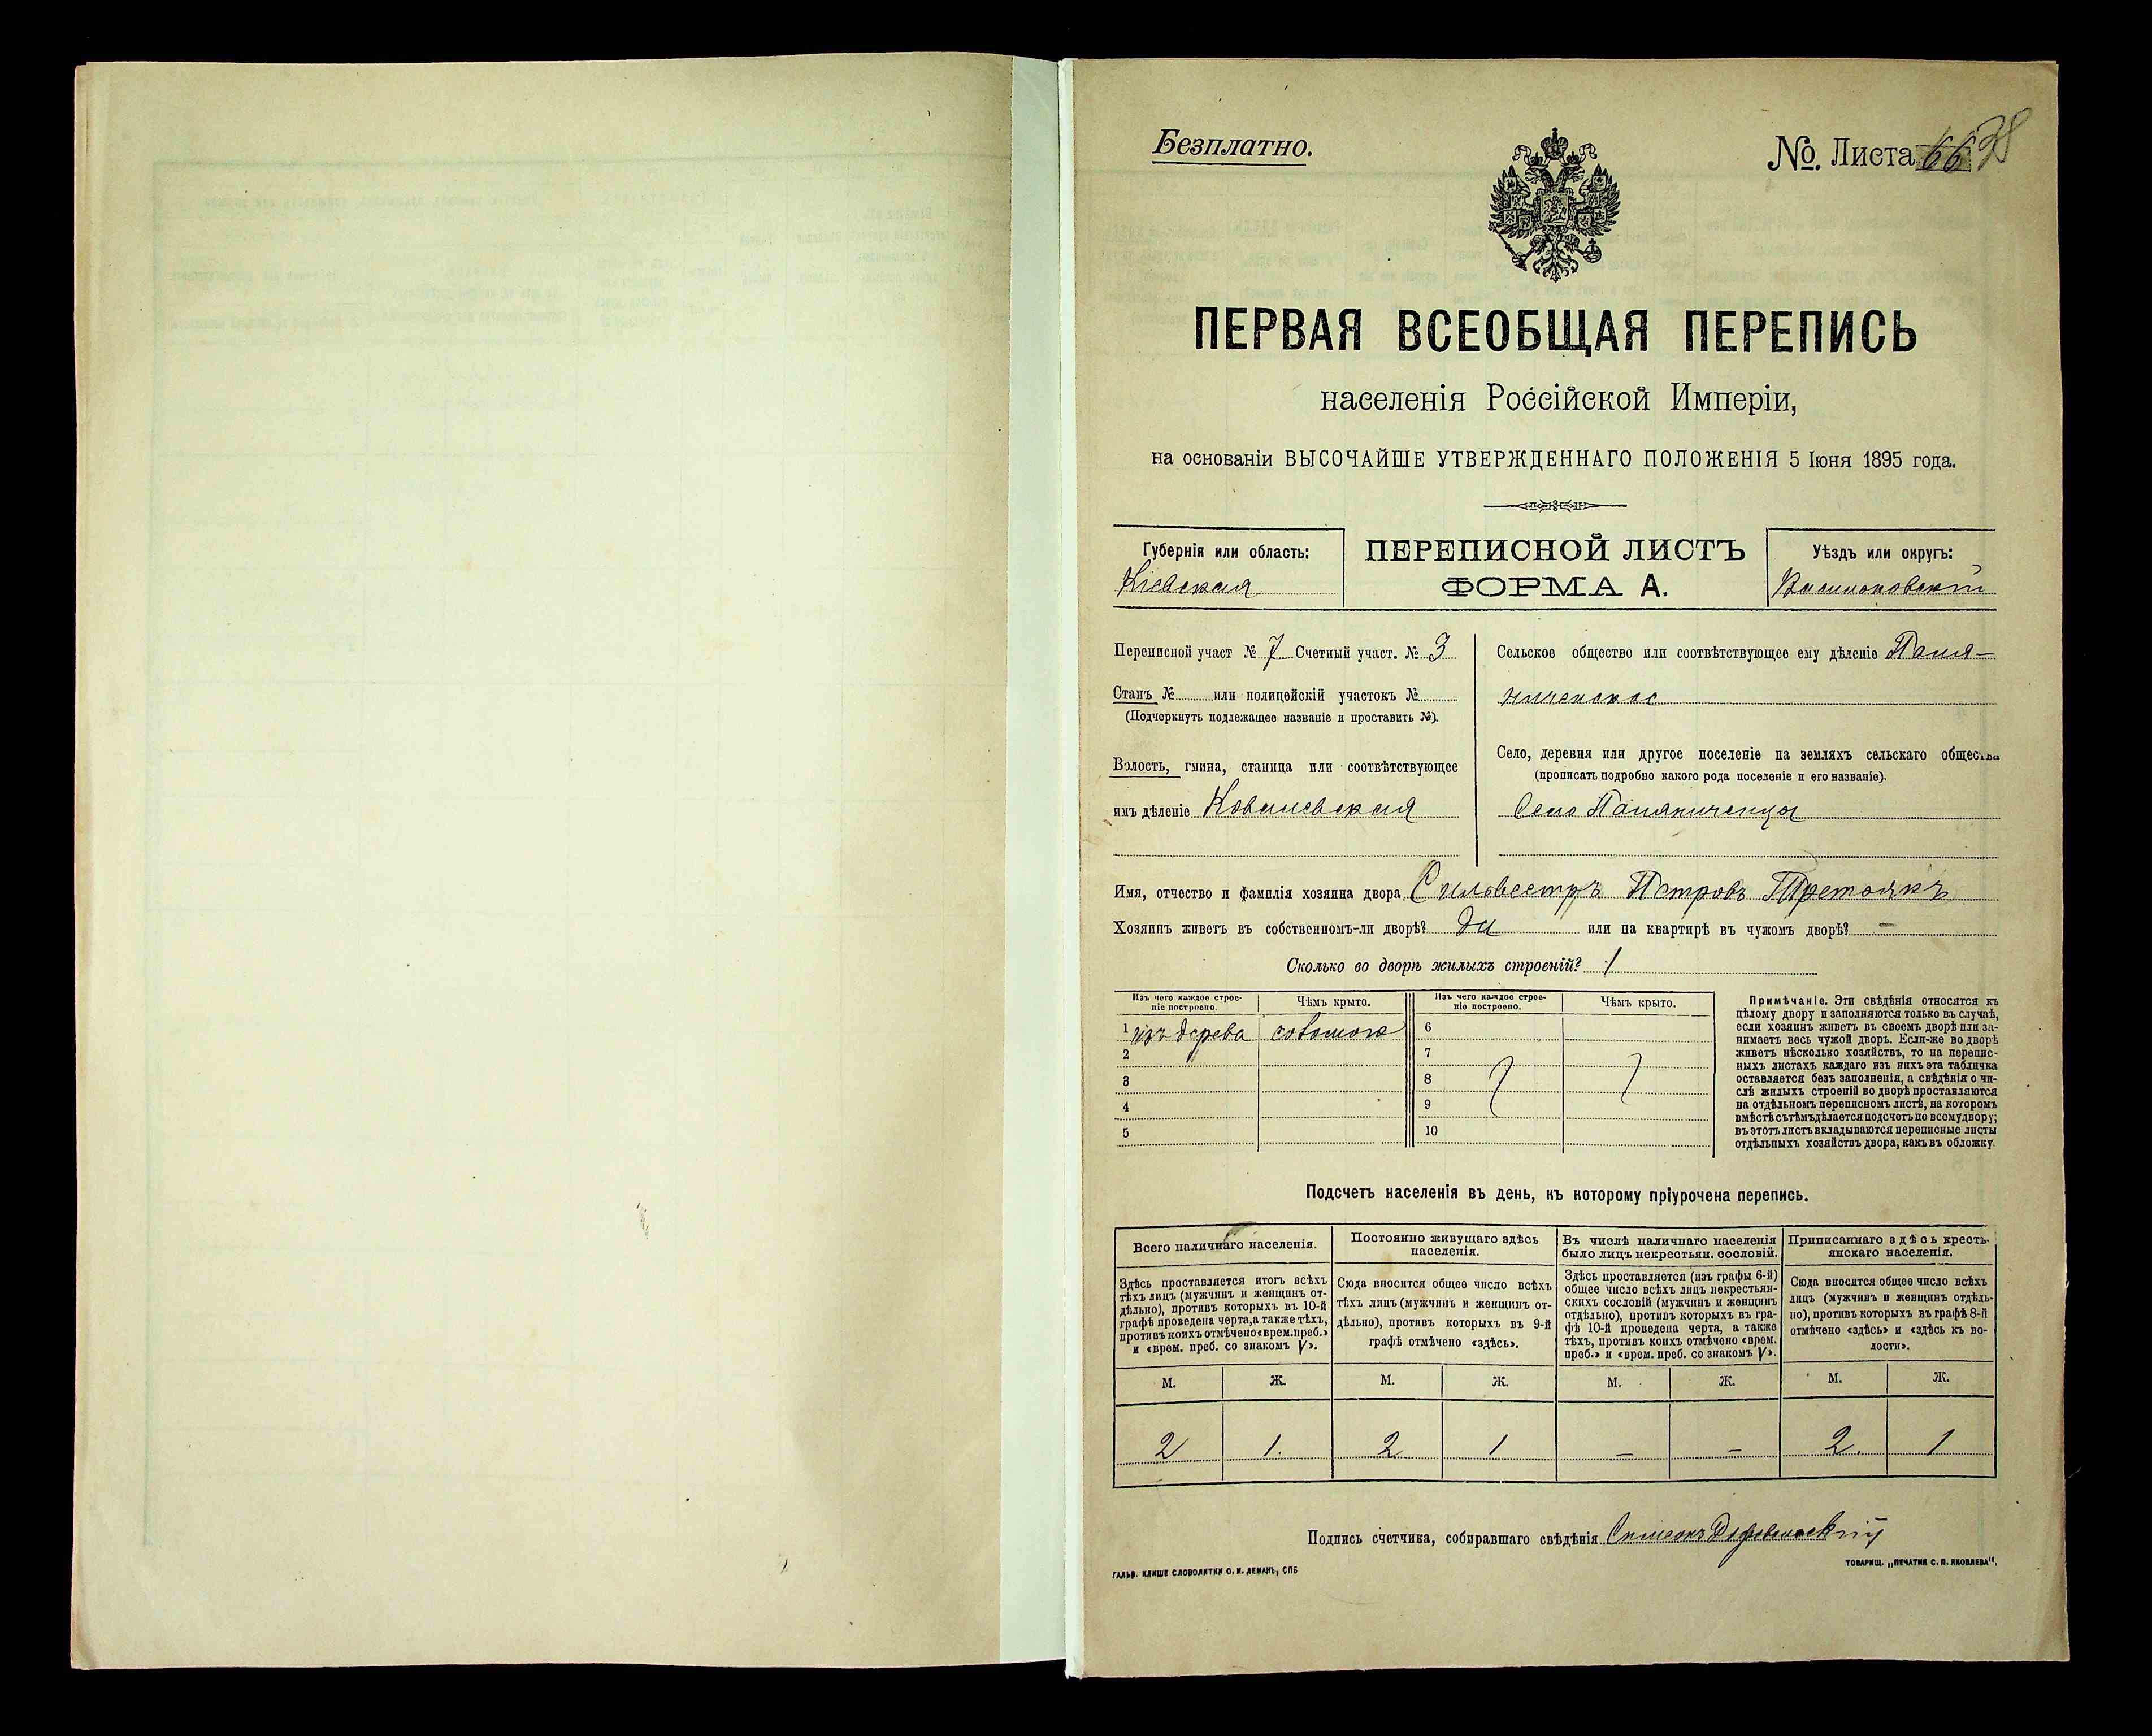 Безплатно.
№. Листа 66
ПЕРВАЯ ВСЕОБЩАЯ ПЕРЕПИСЬ
населенія Россійской Имперіи,
на основаніи ВЫСОЧАЙШЕ УТВЕРЖДЕННАГО ПОЛОЖЕНІЯ 5 Іюня 1895 года.
Губернія или область:
Кіевская
ПЕРЕПИСНОЙ ЛИСТЪ
ФОРМА А.
Уѣздъ или округъ:
Васильковскій
Переписной участ № 7 Счетный участ. № 3
Станъ № или полицейскій участокъ №
(Подчеркнуть подлежащее названіе и проставить №).
Волость, гмина, станица или соотвѣтствующее
имъ дѣленіе Ковалевская
Сельское общество или соотвѣтствующее ему дѣленіе Паля-
ниченское
Село, деревня или другое поселеніе на земляхъ сельскаго общества
(прописать подробно какого рода поселеніе и его названіе).
Село Паляниченцы
Имя, отчество и фамилія хозяина двора Сильвестръ Петровъ Третякъ
Хозяинъ живетъ въ собственномъ-ли дворѣ? Да или на квартирѣ въ чужомъ дворѣ? —
Сколько во дворѣ жилыхъ строеній? 1
Изъ чего каждое строе-
ніе построено.
Чѣмъ крыто.
Изъ чего каждое строе-
ніе построено.
Чѣмъ крыто.
1 изъ дерева соломою 6
2 7
3 8
4 9
5 10
Примѣчаніе. Эти свѣдѣнія относятся къ
цѣлому двору и заполняются только въ случаѣ,
если хозяинъ живетъ въ своемъ дворѣ или за-
нимаетъ весь чужой дворъ. Если-же во дворѣ
живетъ нѣсколько хозяйствъ, то на перепис-
ныхъ листахъ каждаго изъ нихъ эта табличка
оставляется безъ заполненія, а свѣдѣнія о чи-
слѣ жилыхъ строеній во дворѣ проставляются
на отдѣльномъ переписномъ листѣ, на которомъ
вмѣстѣ съ тѣмъ дѣлается подсчетъ по всему двору;
въ этотъ листъ вкладываются переписные листы
отдѣльныхъ хозяйствъ двора, какъ въ обложку.
Подсчетъ населенія въ день, къ которому пріурочена перепись.
Всего наличнаго населенія.
Здѣсь проставляется итогъ всѣхъ
тѣхъ лицъ (мужчинъ и женщинъ от-
дѣльно), противъ которыхъ въ 10-й
графѣ проведена черта, а также тѣхъ,
противъ коихъ отмѣчено «врем. преб.»
и «врем. преб. со знакомъ V».
Постоянно живущаго здѣсь
населенія.
Сюда вносится общее число всѣхъ
тѣхъ лицъ (мужчинъ и женщинъ от-
дѣльно), противъ которыхъ въ 9-й
графѣ отмѣчено «здѣсь».
Въ числѣ наличнаго населенія
было лицъ некрестьян. сословій.
Здѣсь проставляется (изъ графы 6-й)
общее число всѣхъ лицъ некрестьян-
скихъ сословій (мужчинъ и женщинъ
отдѣльно), противъ которыхъ въ гра-
фѣ 10-й проведена черта, а также
тѣхъ, противъ коихъ отмѣчено «врем.
преб.» и «врем. преб. со знакомъ V».
Приписаннаго здѣсь кресть-
янскаго населенія.
Сюда вносится общее число всѣхъ
лицъ (мужчинъ и женщинъ отдѣль-
но), противъ которыхъ въ графѣ 8-й
отмѣчено «здѣсь» и «здѣсь къ во-
лости».
М. Ж. М. Ж. М. Ж. М. Ж.
2 1. 2 1 — — 2. 1
Подпись счетчика, собиравшаго свѣдѣнія
ГАЛЬВ. КЛИШЕ СЛОВОЛИТНИ О. И. ЛЕМАНЪ, СПБ
ТОВАРИЩ. „ПЕЧАТНЯ С. П. ЯКОВЛЕВА“.